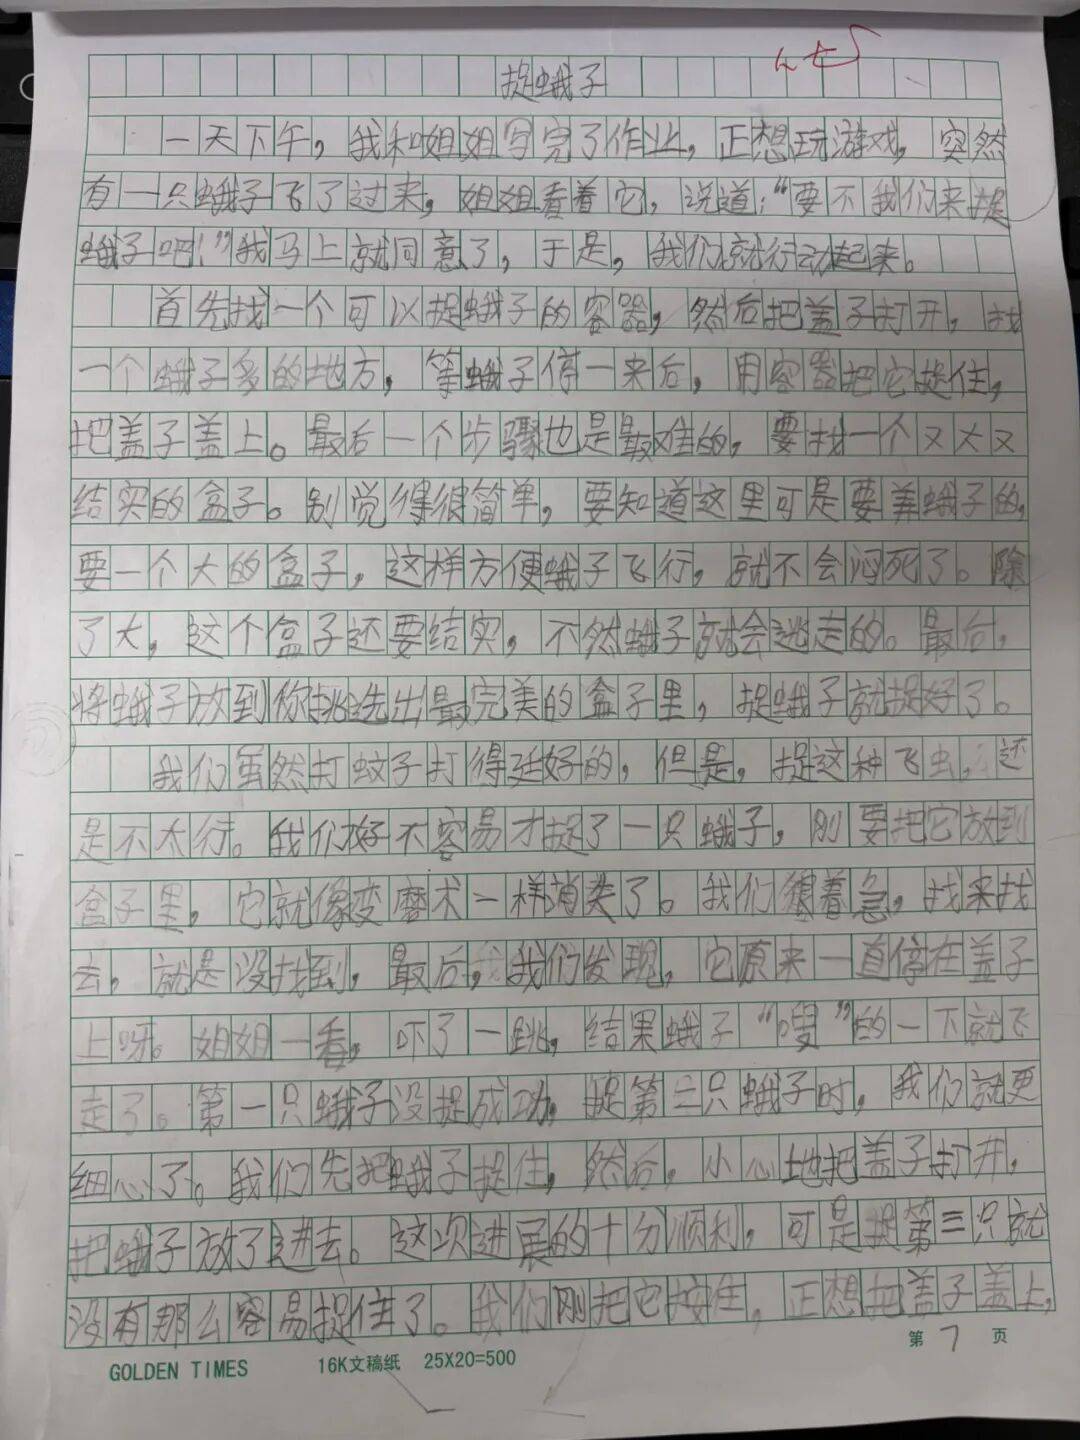 捉蛾子
一天下午，我和姐姐写完了作业，正想玩游戏，突然
有一只蛾子飞了过来，姐姐看着它，说道：“要不我们来捉
蛾子吧！”我马上就同意了，于是，我们就行动起来。
首先找一个可以捉蛾子的容器，然后把盖子打开，找
一个蛾子多的地方，等蛾子停一来后，用容器把它捉住，
把盖子盖上。最后一个步骤也是最难的，要找一个又大又
结实的盒子。别觉得很简单，要知道这里可是要养蛾子的，
要一个大的盒子，这样方便蛾子飞行，就不会闷死了。除
了大，这个盒子还要结实，不然蛾子就会逃走的。最后，
将蛾子放到你挑选出最完美的盒子里，捉蛾子就捉好了。
我们虽然打蚊子打得挺好的，但是，捉这种飞虫，还
是不太行。我们好不容易才捉了一只蛾子，刚要把它放到
盒子里，它就像变磨术一样消失了。我们很着急，找来找
去，就是没找到，最后，我们发现，它原来一直停在盖子
上呀。姐姐一看，吓了一跳，结果蛾子“嗖”的一下就飞
走了。第一只蛾子没捉成功，捉第二只蛾子时，我们就更
细心了。我们先把蛾子捉住，然后，小心地把盖子打开，
把蛾子放了进去。这次进展的十分顺利，可是捉第三只就
没有那么容易捉住了。我们刚把它按住，正想把盖子盖上，
第 7 页
GOLDEN TIMES 16K文稿纸 25X20=500